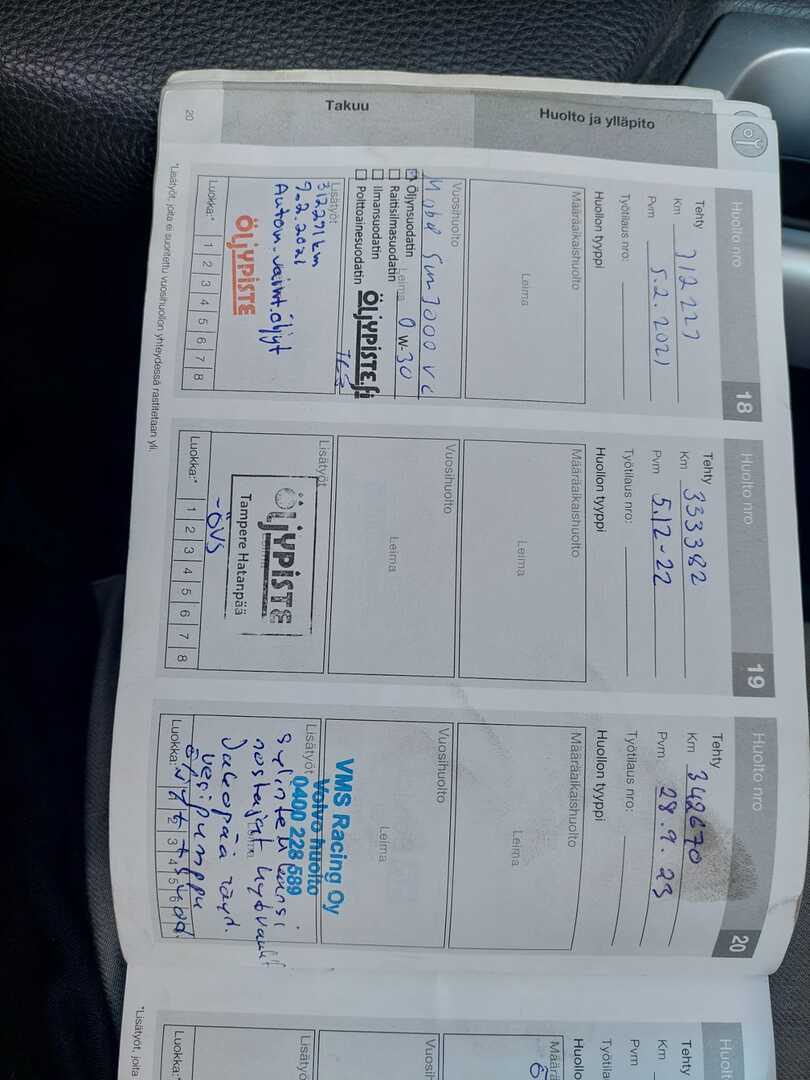 Huolto ja ylläpito
Takuu
Huolto nro
18
Tehty
Km 312 227
Pvm 5.2.2021
Työtilaus nro:
Huollon tyyppi
Määräaikaishuolto
Leima
Vuosihuolto
Leima
Mobil
0 W-30
Öljynsuodatin
Raitisilmasuodatin
Ilmansuodatin
Polttoainesuodatin
ÖLJYPISTE.fi
Lisätyöt
312271 km
9.2.2021
Autom.vaiht.öljyt
ÖLJYPISTE
Luokka:* 1 2 3 4 5 6 7 8
Huolto nro
19
Tehty
Km 333382
Pvm 5.12-22
Työtilaus nro:
Huollon tyyppi
Määräaikaishuolto
Leima
Vuosihuolto
Leima
Lisätyöt
ÖLJYPISTE
Tampere Hatanpää
-ÖVS
Luokka:* 1 2 3 4 5 6 7 8
Huolto nro
20
Tehty
Km 342670
Pvm 28.9.23
Työtilaus nro:
Huollon tyyppi
Määräaikaishuolto
Leima
Vuosihuolto
Leima
VMS Racing Oy
Volvo huolto
0400 228 589
Lisätyöt
sylinterikansi
nostajat
Jakopää
vesipumppu
Luokka:* 1 2 3 4 5 6
20
*Lisätyöt, joita ei suoritettu vuosihuollon yhteydessä rastitetaan yli.
Huolt
Tehty
Km
Pvm
Työtila
Huollo
Määrä
Vuosih
Lisätyö
Luokka:*
*Lisätyöt, joita